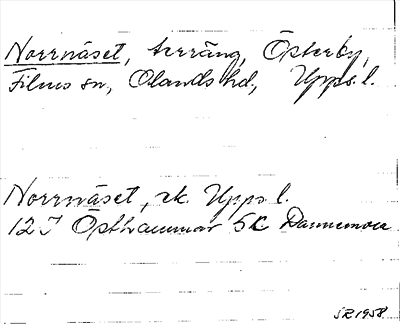 Norrnäset, terräng, Österby,
Films sn, Olands hd, Upps. l.
Norrnäset, ek. Upps l.
12 I Östhammar SK Dannemora
SR 1958